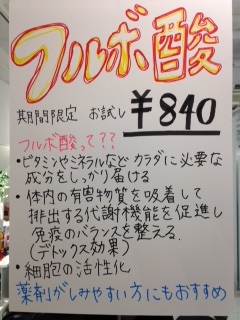 フルボ酸
期間限定 お試し ¥840
フルボ酸って??
・ビタミンやミネラルなど カラダに必要な
成分をしっかり届ける
・体内の有害物質を吸着して
排出する代謝機能を促進し
免疫のバランスを整える.
(デトックス効果)
・細胞の活性化
薬剤がしみやすい方にもおすすめ